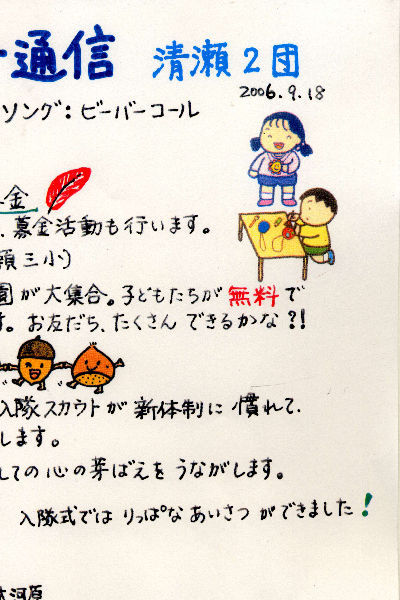 通信 清瀬2団
2006.9.18
ソング:ビーバーコール
金
、募金活動も行います。
瀬三小)
園が大集合。子どもたちが無料で
す。お友だち、たくさんできるかな?!
入隊スカウトが新体制に慣れて、
します。
しての心の芽ばえをうながします。
入隊式ではりっぱなあいさつができました!
河原